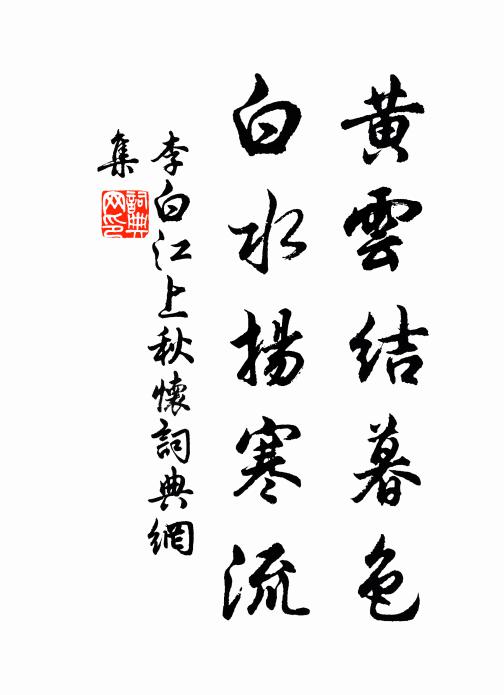 黄雲結暮色
白水揚寒流
李白江上秋懷詞典網
集
詞典
网印